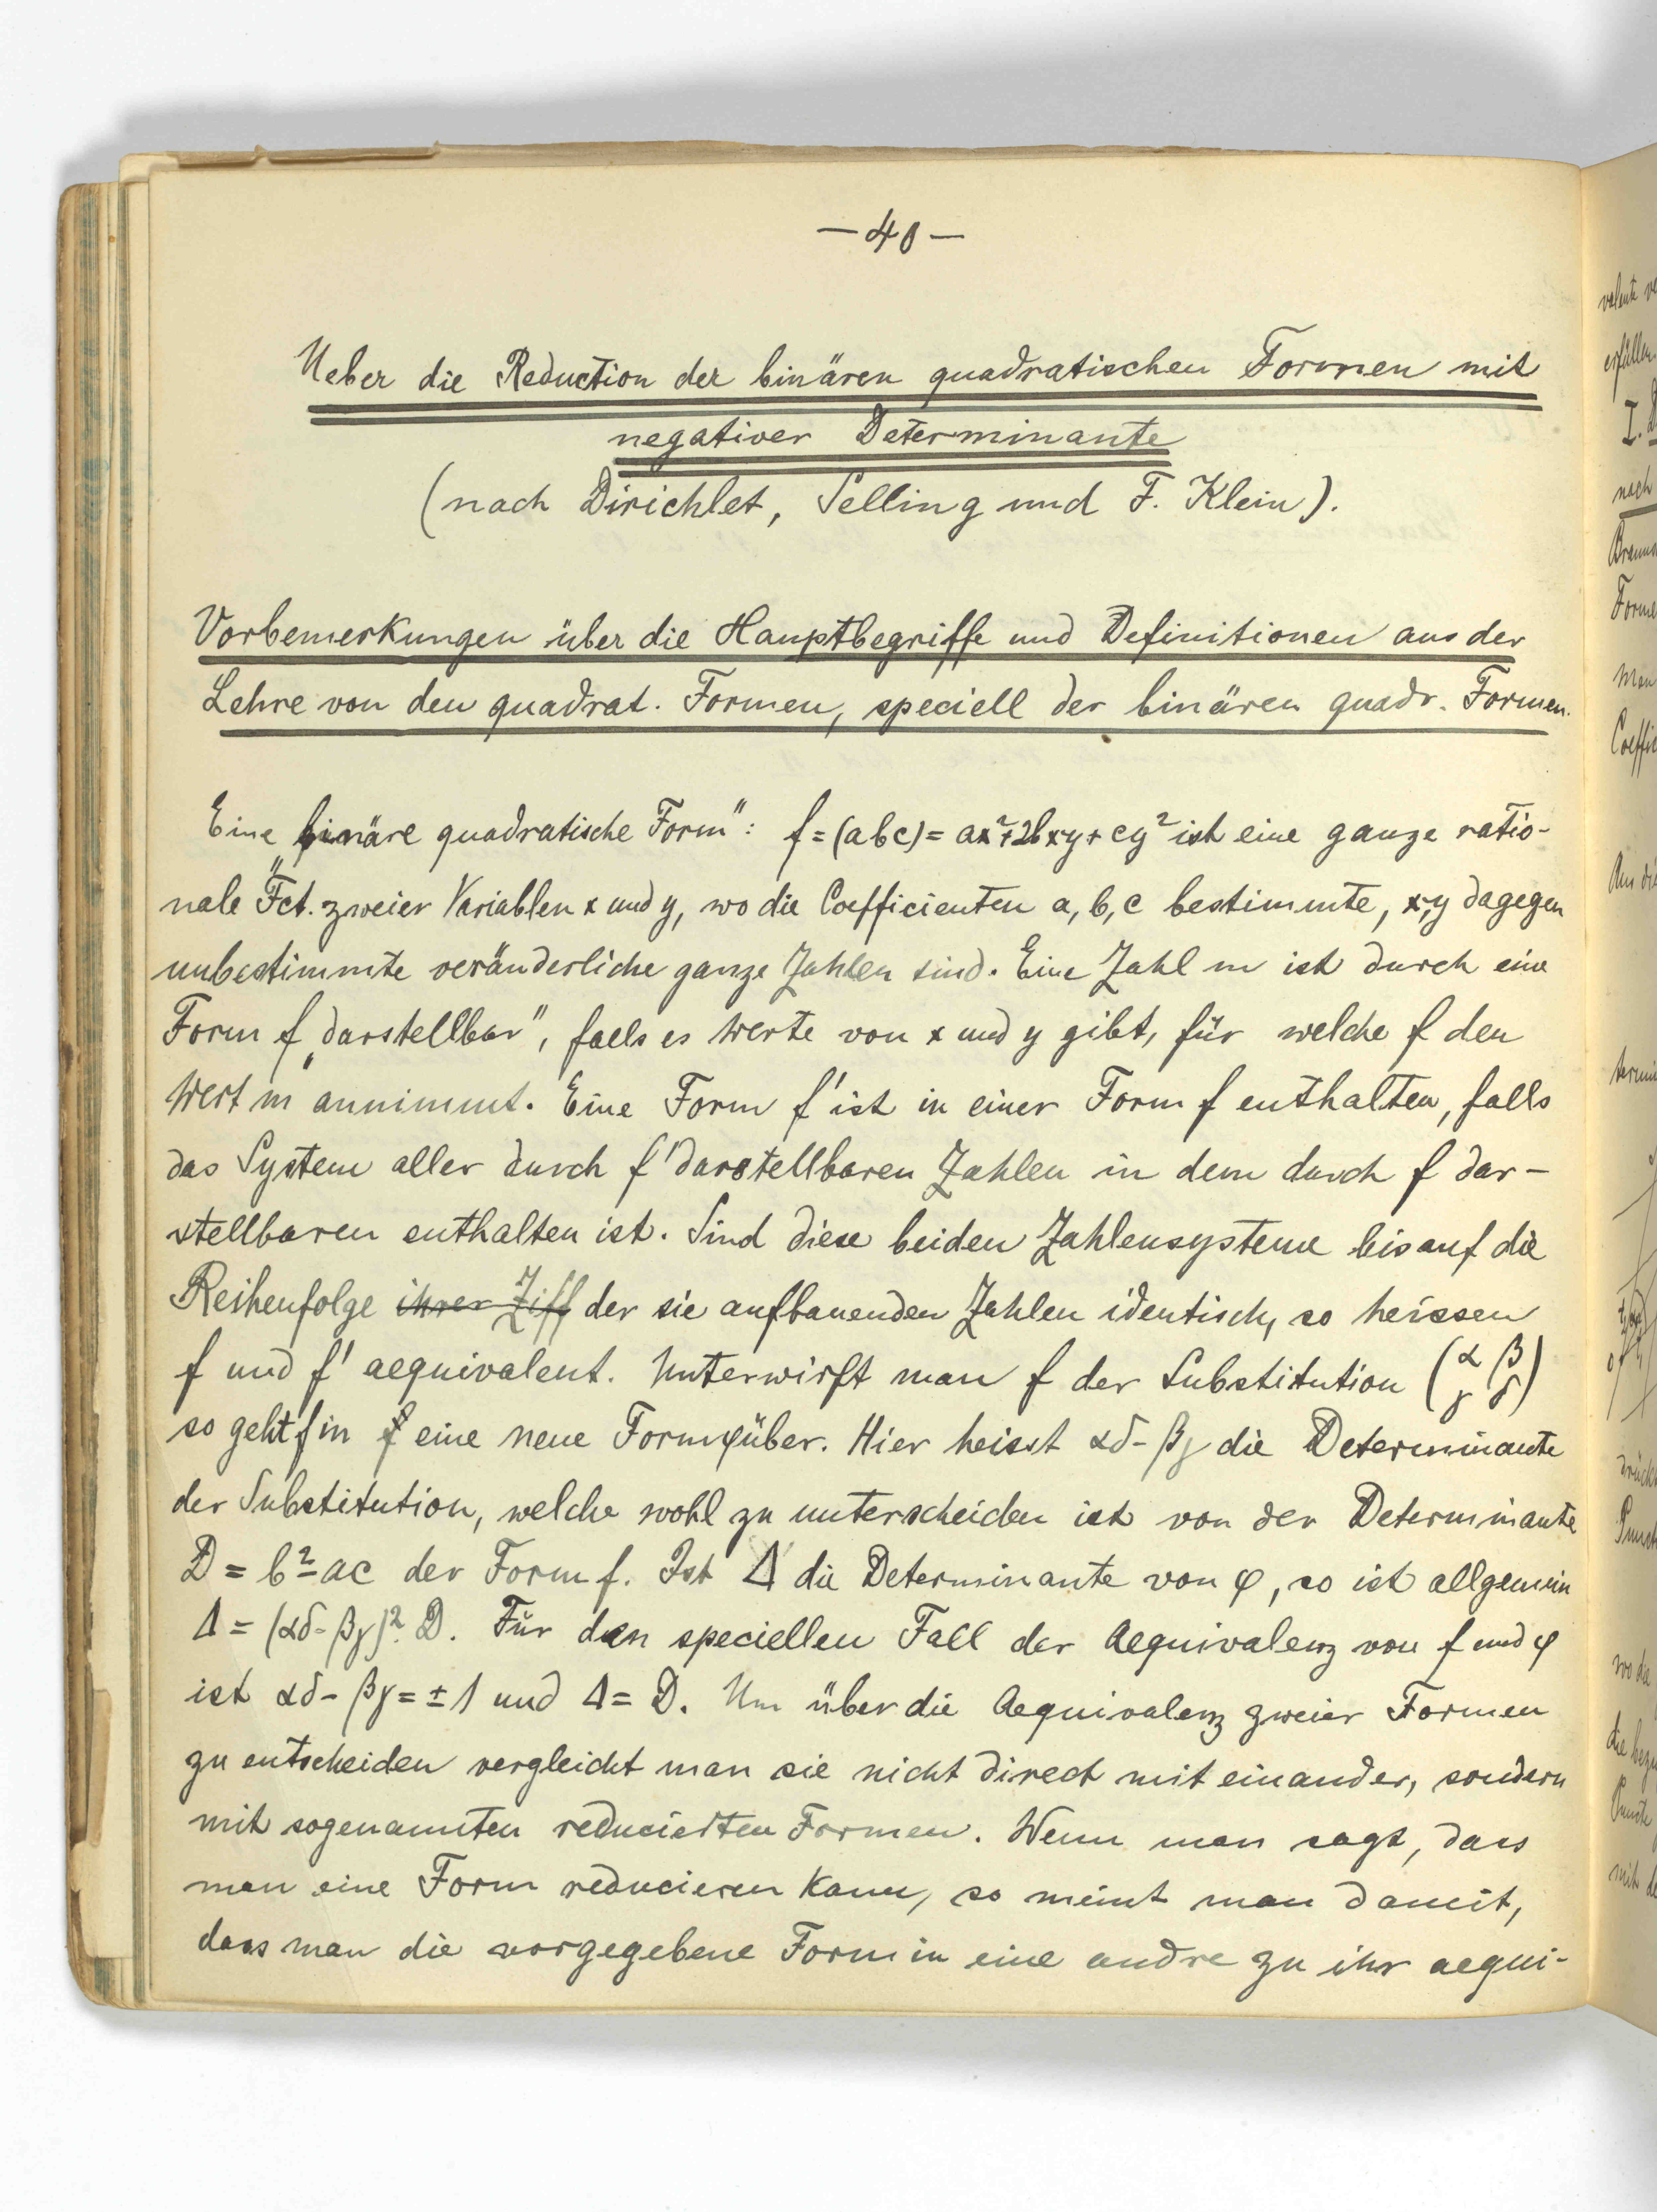 — 40 —
Ueber die Reduction der binären quadratischen Formen mit
negativer Determinante
(nach Dirichlet, Selling und F. Klein).
Vorbemerkungen über die Hauptbegriffe und Definitionen aus der
Lehre von den quadrat. Formen, speciell der binären quadr. Formen.
Eine „binäre quadratische Form": f = (abc) = ax²+2bxy+cy² ist eine ganze ratio-
nale Fct. zweier Variablen x und y, wo die Coefficienten a, b, c bestimmte, x,y dagegen
unbestimmte veränderliche ganze Zahlen sind. Eine Zahl m ist durch eine
Form f „darstellbar", falls es Werte von x und y gibt, für welche f den
Wert m annimmt. Eine Form f' ist in einer Form f enthalten, falls
das System aller durch f' darstellbaren Zahlen in dem durch f dar-
stellbaren enthalten ist. Sind diese beiden Zahlensysteme bis auf die
Reihenfolge ihrer Ziff der sie aufbauenden Zahlen identisch, so heissen
f und f' aequivalent. Unterwirft man f der Substitution (α β
γ δ)
so geht f in f eine neue Form φ über. Hier heisst αδ-βγ die Determinante
der Substitution, welche wohl zu unterscheiden ist von der Determinante
D = b²-ac der Form f. Ist Δ die Determinante von φ, so ist allgemein
Δ = (αδ-βγ)². D. Für den speciellen Fall der Aequivalenz von f und φ
ist αδ-βγ = ±1 und Δ = D. Um über die Aequivalenz zweier Formen
zu entscheiden vergleicht man sie nicht direct mit einander, sondern
mit sogenannten reducierten Formen. Wenn man sagt, dass
man eine Form reducieren kann, so meint man damit,
dass man die vorgegebene Form in eine andre zu ihr aequi-